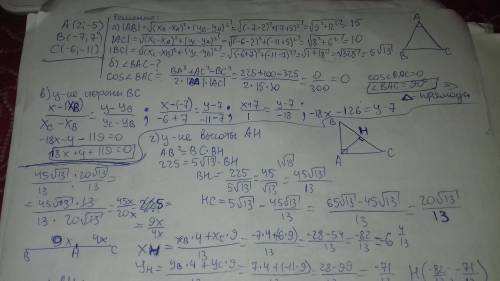 A(2;-5)
B(-7;7)
C(-6;-11)
Решение:
а) |AB| = √(xB-xA)²+(yB-yA)² = √(-7-2)²+(7+5)² = √9²+12² = 15
|AC| = √(xC-xA)²+(yC-yA)² = √(-6-2)²+(-11+5)² = √8²+6² = 10
|BC| = √(-6+7)²+(-11-7)² = √1+18² = √325 = 5√13
б) ∠BAC-?
cos∠BAC = BA²+AC²-BC² / 2·|BA|·|AC| = 225+100-325 / 2·15·10 = 0/300 = 0
cos∠BAC=0
∠BAC=90°
в) у-ие стороны BC
x-xB / xC-xB = y-yB / yC-yB ; x-(-7) / -6+7 = y-7 / -11-7 ; x+7 / 1 = y-7 / -18 ; -18x-126=y-7
-18x-y-119=0
18x+y+119=0
г) у-ие высоты AH
AB²=BC·BH
225=5√13·BH
BH = 225 / 5√13 = 45 / √13 = 45√13 / 13
HC = 5√13 - 45√13 / 13 = 65√13-45√13 / 13 = 20√13 / 13
45√13 / 13 : 20√13 / 13 =
= 45√13·13 / 13·20√13 = 45x / 20x =
= 9x / 4x
xH = xB·4+xC·9 / 13 = -7·4+(-6·9) / 13 = -28-54 / 13 = -82 / 13 = -6 4/13
yH = yB·4+yC·9 / 13 = 7·4+(-11·9) / 13 = 28-99 / 13 = -71 / 13
A
B
C
B
H
A
C
9x 4x
B H C